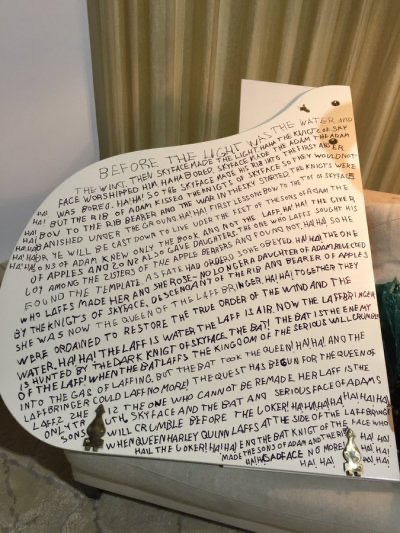 BEFORE THE LIGHT WAS THE WATER AND
THE WIND. THEN SKYFACE MADE THE LIGHT HAHA THE KNIGTS OF SAY
FACE WORSHIPPED HIM HAHA BORED. SKYFACE MADE THE ADAM
WAS BORED. HA! HA! SO THE SKYFACE MADE HIS RIB INTO THE FIRST
HA! BUT THE RIB OF ADAM KISSED THE KNIGTS OF SKYFACE SO THEY WOULDNOT
HA! BOW TO THE RIB BEARER AND THE WAR IN THE SKY STARTED. THE KNIGTS WERE
HA! BANISHED UNDER THE GROUND. HA! HA! FIRST LESSONS BOW TO THE OF SKYFACE
HA! YE WILL BE CAST DOWN TO LIVE UNDER THE FEET OF THE SONS OF ADAM THE
HA! HA! SONS OF ADAM KNEW ONLY THE BOOK AND NOT THE LAFF. HA! HA! THE
OF APPLES AND ZONE ALSO GAVE DAUGHTERS. THE ONE WHO LAFFS SOUGHT HIS
LOT AMONG THE ZISTERS OF THE APPLE BEARERS AND FOUND NOT. HA! HA! SO HE
FOUND THE TEMPLATE AS FATE HAD ORDERED LOVE OBEYED. HA! HA! THE ONE
WHO LAFFS MADE HER AND SHE ROSE- NO LONGER A DAUGHTER OF ADAM. REJECTED
BY THE KNIGTS OF SKYFACE, DESCENDANT OF THE RIB AND BEARER OF APPLES
SHE WAS NOW THE QUEEN OF THE LAFFBRINGER. HA! HA! TOGETHER THEY
WERE ORDAINED TO RESTORE THE TRUE ORDER OF THE WIND AND THE
WATER. HA! HA! THE LAFF IS WATER THE LAFF IS AIR. NOW THE LAFFBRINGER
IS HUNTED BY THE DARK KNIGT OF SKYFACE. THE BAT! THE BAT IS THE ENEMY
OF THE LAFF! WHEN THE BAT LAFFS THE KINGDOM OF THE SERIOUS WILL CRUMBLE
INTO THE GAS OF LAFFING. BUT THE BAT TOOK THE QUEEN! HA! HA! AND THE
LAFFBRINGER COULD LAFF NO MORE! THE QUEST HAS BEGUN FOR THE QUEEN OF
LAFFZ. SHE IZ THE ONE WHO CANNOT BE REMADE. HER LAFF IS THE
ONLY TRUTH. SKYFACE AND THE BAT AND SERIOUS FACE OF ADAMS
SONS WILL CRUMBLE BEFORE THE JOKER! HA! HA! HA! HA! HA! HA! HA!
WHEN QUEEN HARLEY QUINN LAFFS AT THE SIDE OF THE LAFFBRINGER
HAIL THE JOKER! HA! HA! END THE BAT KNIGT OF THE FACE WHO
MADE THE SONS OF ADAM AND THE RIB. HA! HA!
HA! HA! SADFACE NO MORE! HA! HA! HA!
HA! HA! HA! HA! HA!